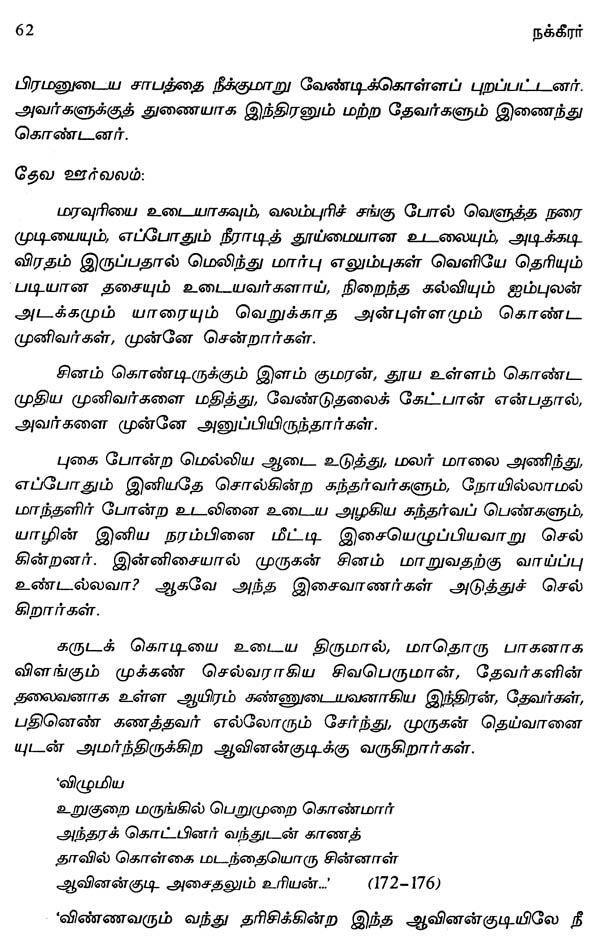 62
நக்கீரர்
பிரமனுடைய சாபத்தை நீக்குமாறு வேண்டிக்கொள்ளப் புறப்பட்டனர்.
அவர்களுக்குத் துணையாக இந்திரனும் மற்ற தேவர்களும் இணைந்து
கொண்டனர்.
தேவ ஊர்வலம்:
மரவுரியை உடையாகவும், வலம்புரிச் சங்கு போல் வெளுத்த நரை
முடியையும், எப்போதும் நீராடித் தூய்மையான உடலையும், அடிக்கடி
விரதம் இருப்பதால் மெலிந்து மார்பு எலும்புகள் வெளியே தெரியும்
படியான தசையும் உடையவர்களாய், நிறைந்த கல்வியும் ஐம்புலன்
அடக்கமும் யாரையும் வெறுக்காத அன்புள்ளமும் கொண்ட
முனிவர்கள், முன்னே சென்றார்கள்.
சினம் கொண்டிருக்கும் இளம் குமரன், தூய உள்ளம் கொண்ட
முதிய முனிவர்களை மதித்து, வேண்டுதலைக் கேட்பான் என்பதால்,
அவர்களை முன்னே அனுப்பியிருந்தார்கள்.
புகை போன்ற மெல்லிய ஆடை உடுத்து, மலர் மாலை அணிந்து,
எப்போதும் இனியதே சொல்கின்ற கந்தர்வர்களும், நோயில்லாமல்
மாந்தளிர் போன்ற உடலினை உடைய அழகிய கந்தர்வப் பெண்களும்,
யாழின் இனிய நரம்பினை மீட்டி இசையெழுப்பியவாறு செல்
கின்றனர். இன்னிசையால் முருகன் சினம் மாறுவதற்கு வாய்ப்பு
உண்டல்லவா? ஆகவே அந்த இசைவாணர்கள் அடுத்துச் செல்
கிறார்கள்.
கருடக் கொடியை உடைய திருமால், மாதொரு பாகனாக
விளங்கும் முக்கண் செல்வராகிய சிவபெருமான், தேவர்களின்
தலைவனாக உள்ள ஆயிரம் கண்ணுடையவனாகிய இந்திரன், தேவர்கள்,
பதினெண் கணத்தவர் எல்லோரும் சேர்ந்து, முருகன் தெய்வானை
யுடன் அமர்ந்திருக்கிற ஆவினன்குடிக்கு வருகிறார்கள்.
'விழுமிய
உறுகுறை மருங்கில் பெறுமுறை கொண்மார்
அந்தரக் கொட்பினர் வந்துடன் காணத்
தாவில் கொள்கை மடந்தையொரு சின்னாள்
ஆவினன்குடி அசைதலும் உரியன்...' (172–176)
'விண்ணவரும் வந்து தரிசிக்கின்ற இந்த ஆவினன்குடியிலே நீ